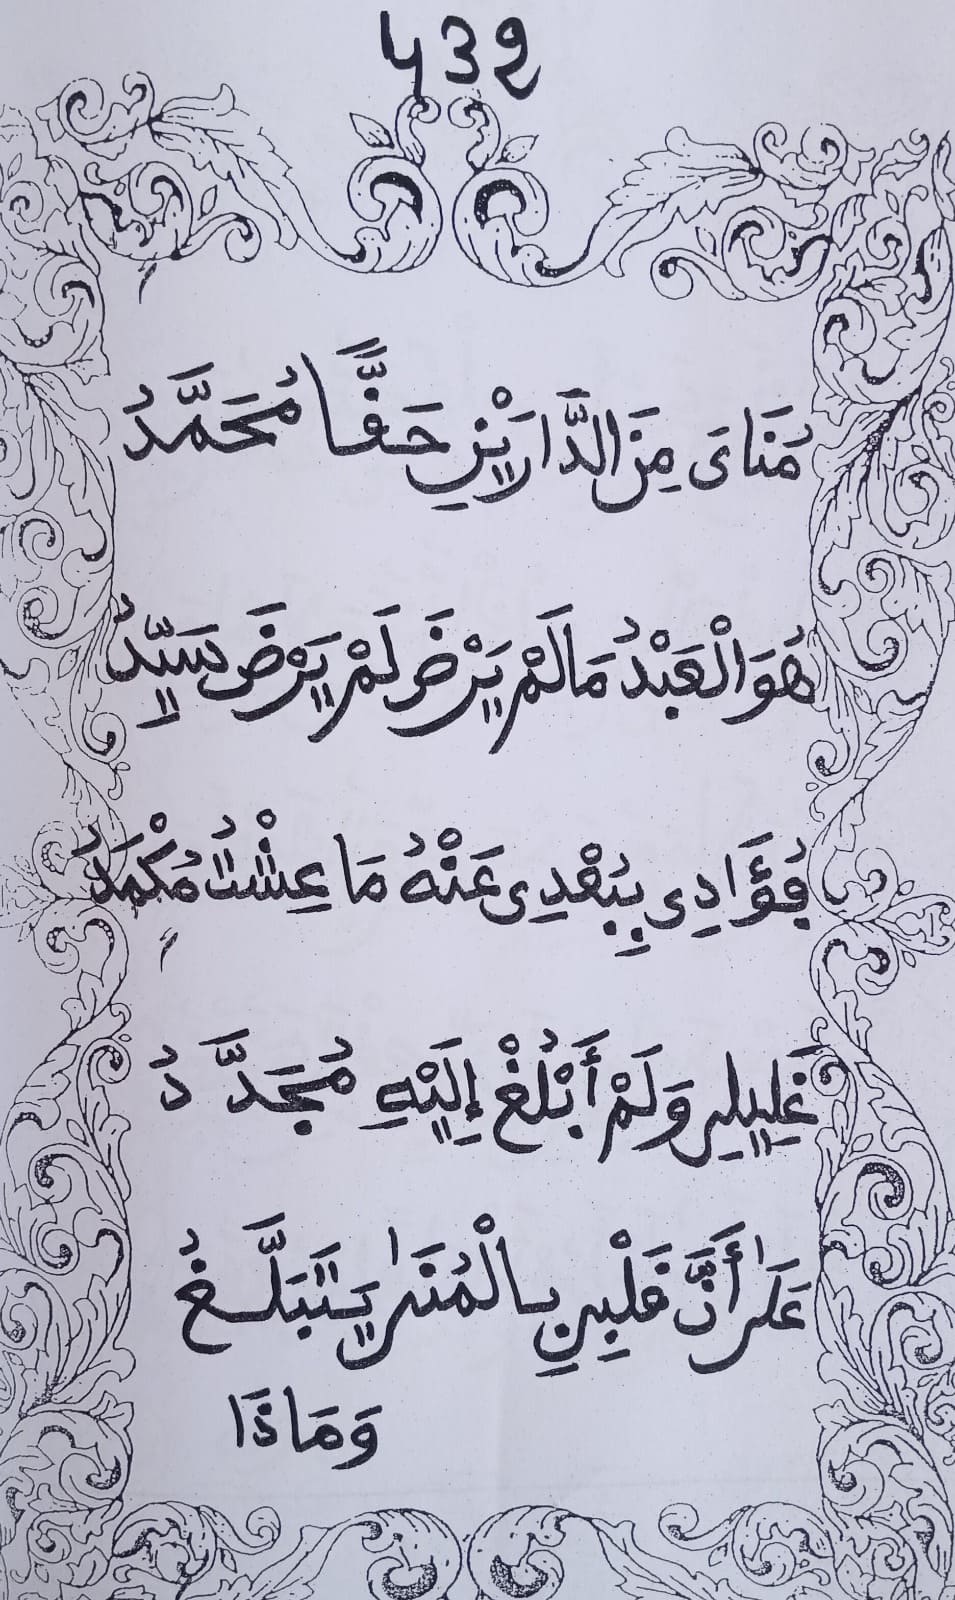 439
مُنَاىَ مِنَ الدَّارَيْنِ حَقًّا مُحَمَّدُ
هُوَ الْعَبْدُ مَا لَمْ يَرْضَ لَمْ يَرْضَ سَيِّدُ
فُؤَادِى بِبُعْدِى عَنْهُ مَا عِشْتُ مُكْمَدُ
غَلِيلِى وَلَمْ أَبْلُغْ إِلَيْهِ مُجَدَّدُ
عَلَى أَنَّ قَلْبِى بِالْمُنَى يَتَبَلَّغُ
وَمَاذَا